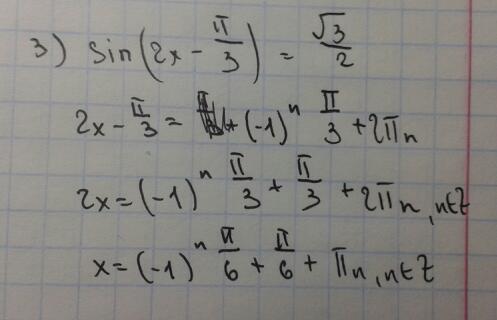 3) sin(2x - π/3) = √3/2
2x - π/3 = (-1)ⁿ π/3 + 2πn
2x = (-1)ⁿ π/3 + π/3 + 2πn, n∈Z
x = (-1)ⁿ π/6 + π/6 + πn, n∈Z